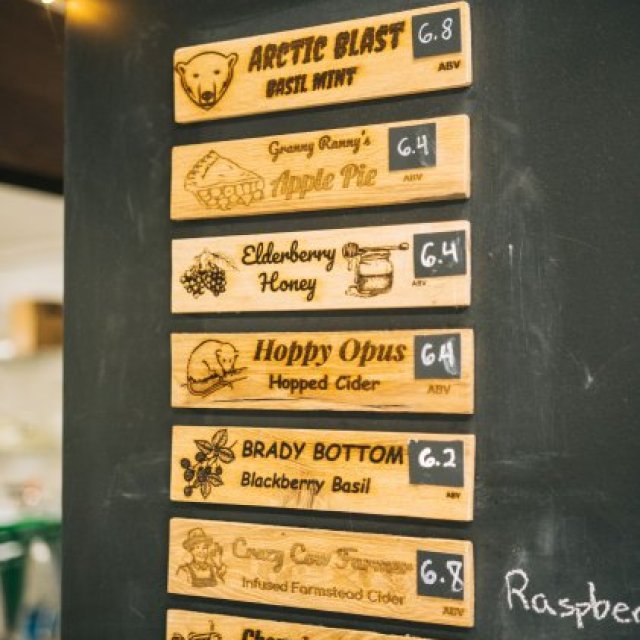 ARCTIC BLAST 6.8
BASIL MINT ABV
Granny Ranny's 6.4
Apple Pie ABV
Elderberry 6.4
Honey ABV
Hoppy Opus 6.4
Hopped Cider ABV
BRADY BOTTOM 6.2
Blackberry Basil ABV
Crazy Cow Farmer 6.8
Infused Farmstead Cider ABV